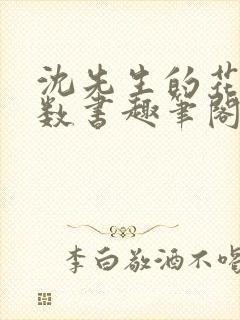 沈先生的花
数书趣笔阁
李白敬酒不喝